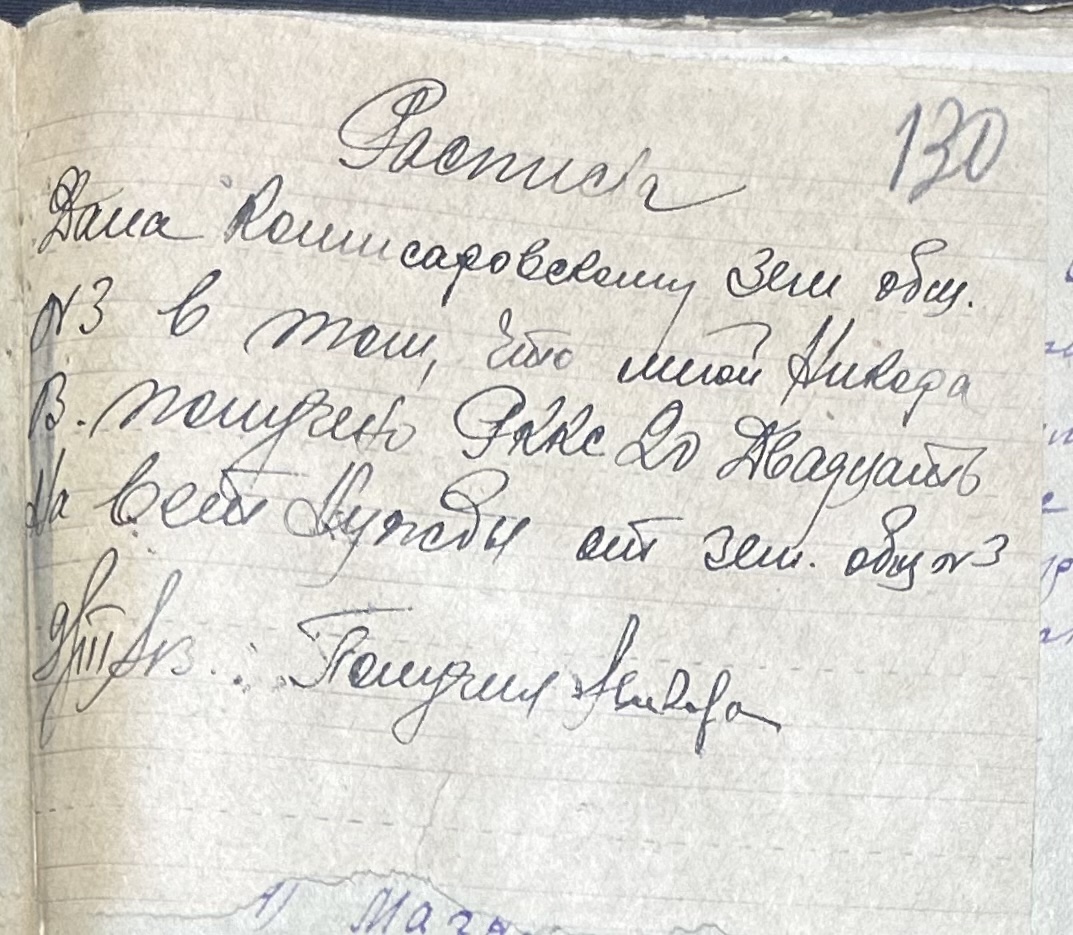 Расписка
130
Дана Комиссаровскому зем общ.
№3 в том, что мной Никода
В. получено 20 Двадцать
На вет нужды от зем. общ №3
Получил Никода
1) Мага